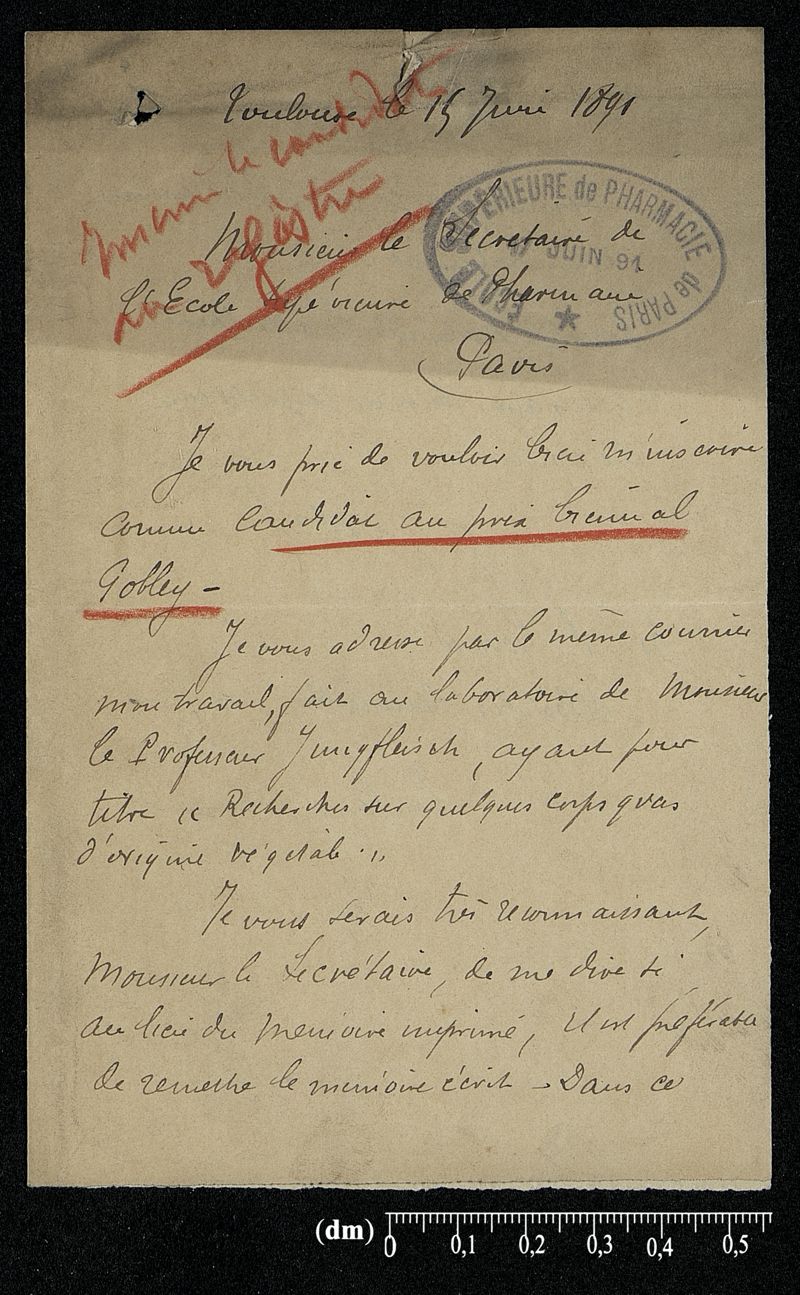 Toulouse le 15 Juin 1891
Inscrire le candidat
au registre
ECOLE SUPÉRIEURE de PHARMACIE de PARIS
JUIN 91
Monsieur le Secretaire de
l'Ecole Supérieure de Pharmacie
Paris
Je vous prie de vouloir bien m'inscrire
comme Candidat au prix biennal
Gobley —
Je vous adresse par le même courrier
mon travail, fait au laboratoire de Monsieur
le Professeur Jungfleisch, ayant pour
titre « Recherches sur quelques corps gras
d'origine végétale. »
Je vous serais très reconnaissant,
Monsieur le Secrétaire, de me dire si
au lieu du mémoire imprimé, il est préférable
de remettre le mémoire écrit — Dans ce
(dm)
0 0,1 0,2 0,3 0,4 0,5